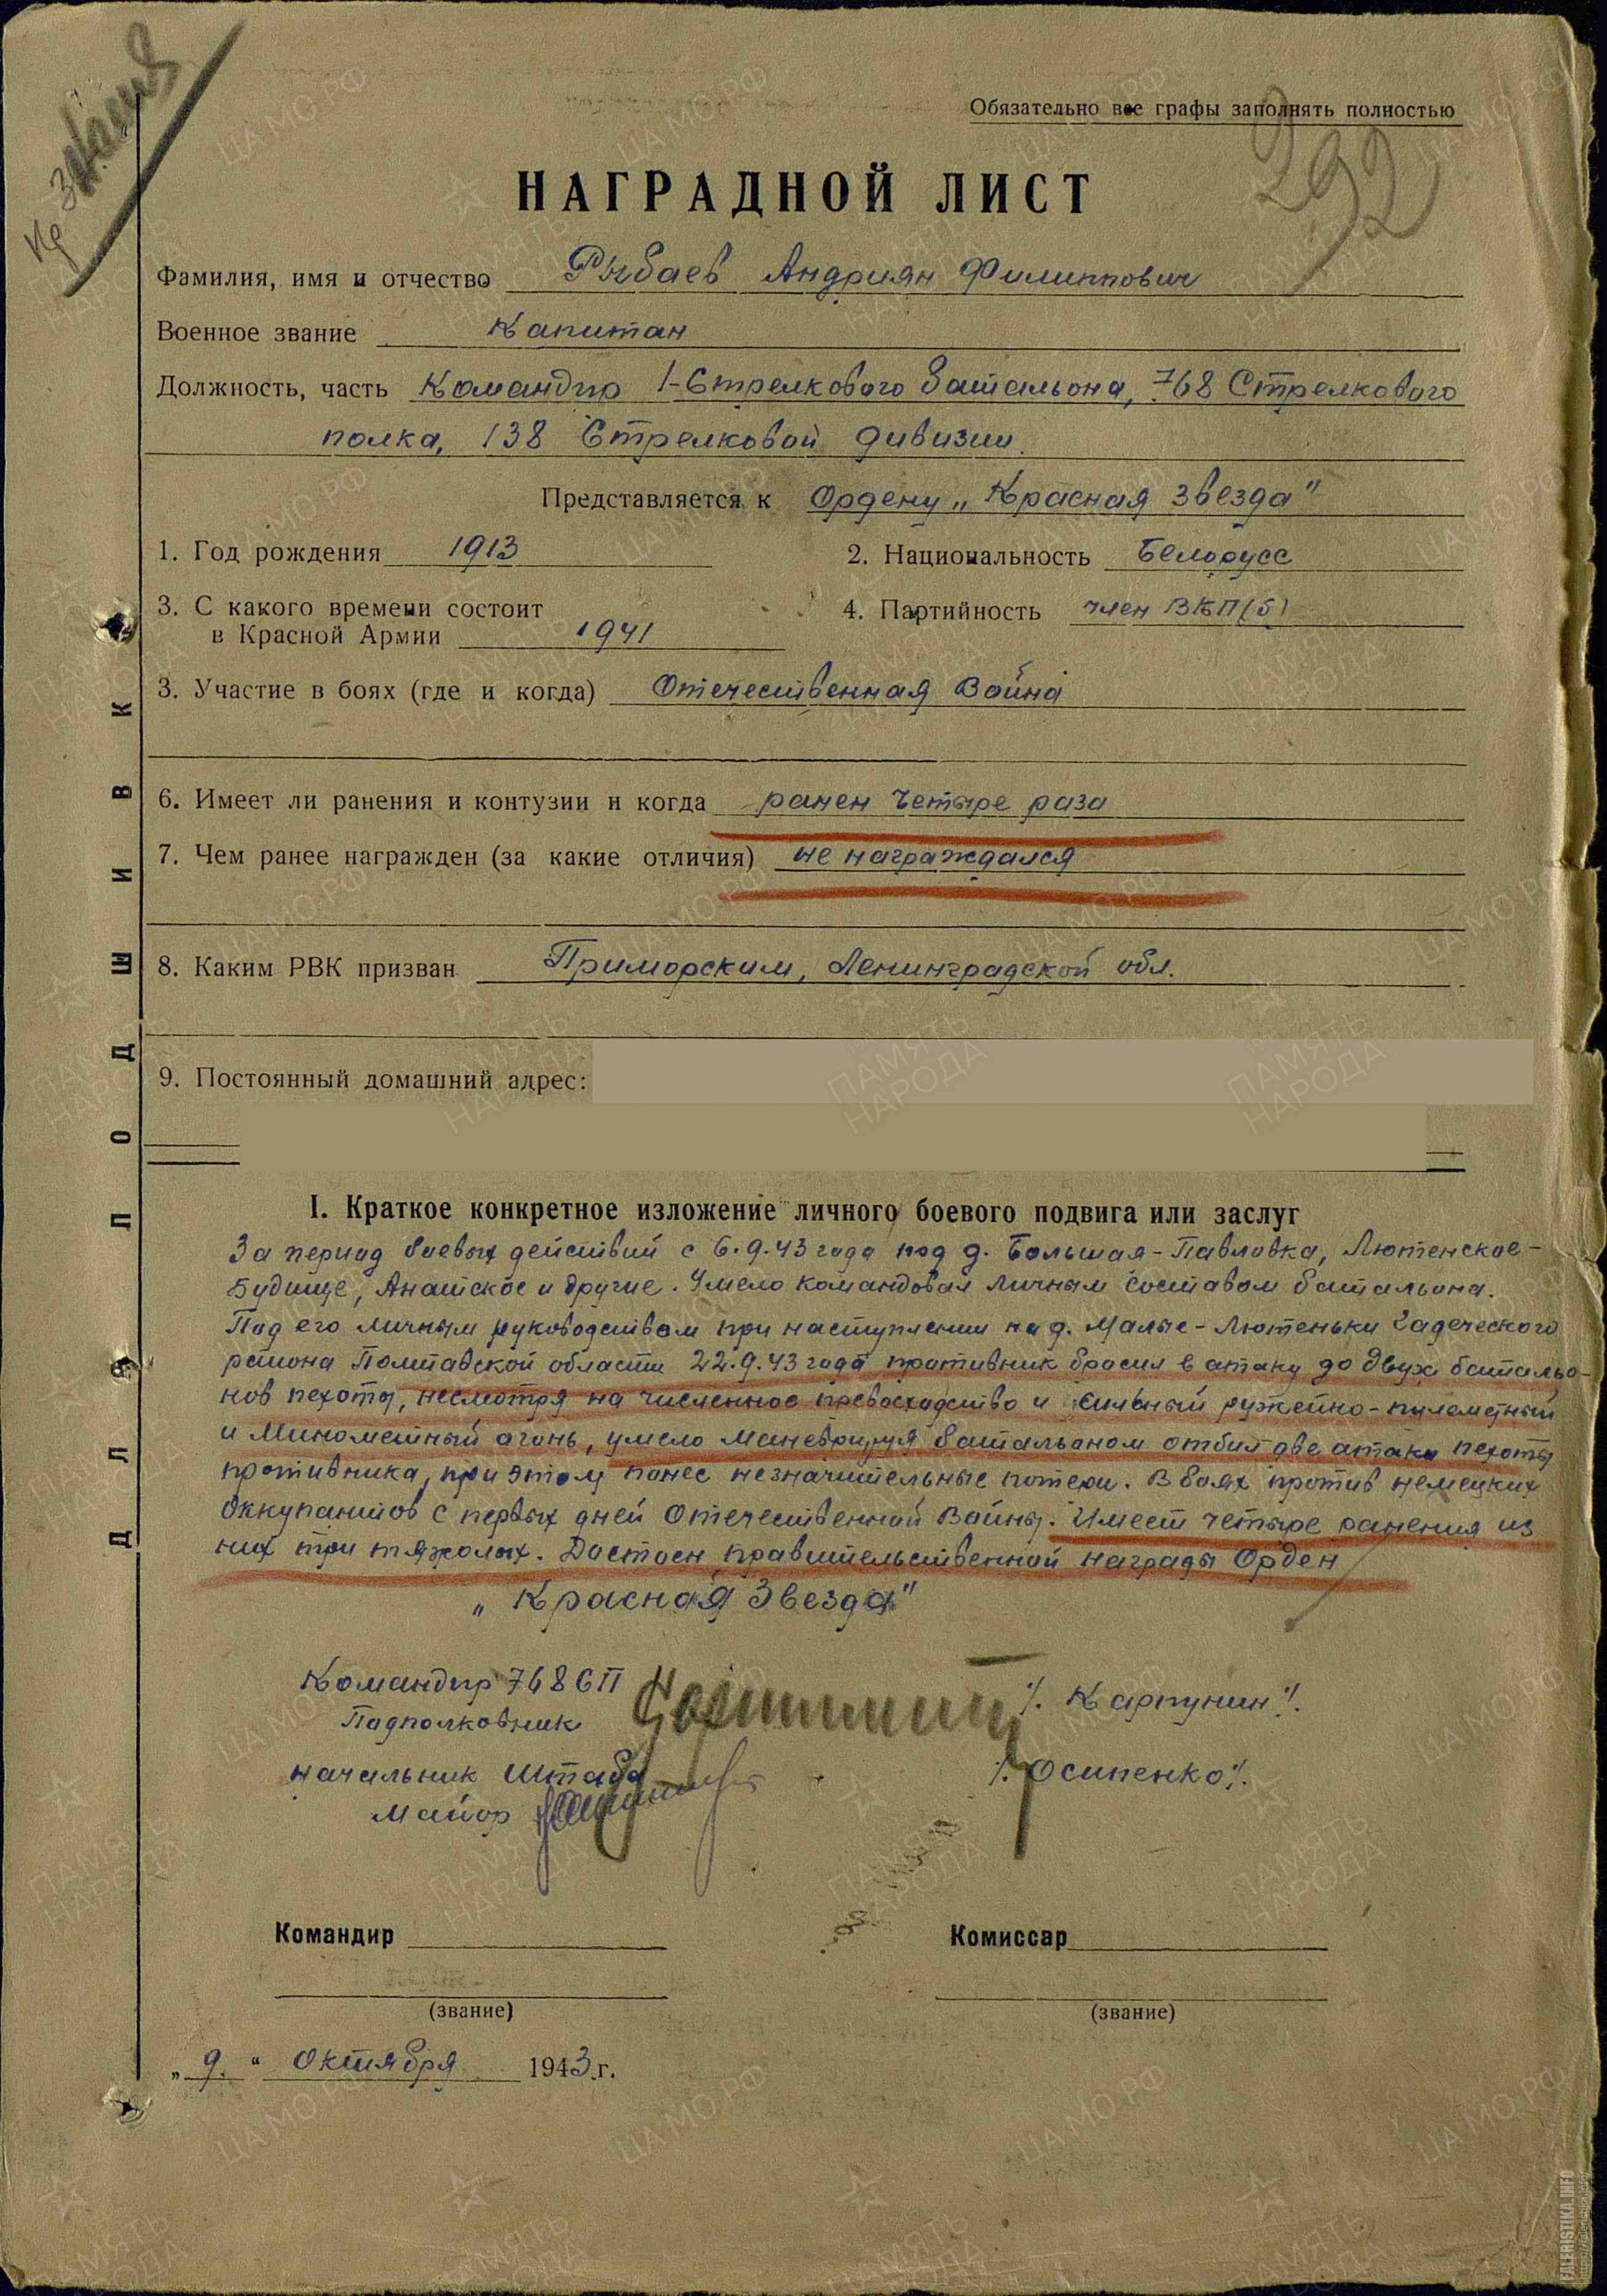 Кр звезда
Обязательно все графы заполнять полностью
292
НАГРАДНОЙ ЛИСТ
Фамилия, имя и отчество Рыбаев Андриян Филиппович
Военное звание Капитан
Должность, часть Командир 1-Стрелкового батальона, 768 Стрелкового
полка, 138 Стрелковой дивизии.
Представляется к Ордену „Красная Звезда"
1. Год рождения 1913
2. Национальность Белорусс
3. С какого времени состоит
в Красной Армии 1941
4. Партийность член ВКП(б)
3. Участие в боях (где и когда) Отечественная Война
6. Имеет ли ранения и контузии и когда ранен четыре раза
7. Чем ранее награжден (за какие отличия) не награждался
8. Каким РВК призван Приморским, Ленинградской обл.
9. Постоянный домашний адрес:
ДЛЯ ПОДШИВКИ
I. Краткое конкретное изложение личного боевого подвига или заслуг
За период боевых действий с 6.9.43 года под д. Большая-Павловка, Лютенское-
Будище, Анатское и другие. Умело командовал личным составом батальона.
Под его личным руководством при наступлении на д. Малые-Лютеньки Гадеческого
района Полтавской области 22.9.43 года противник бросил в атаку до двух батальо-
нов пехоты, несмотря на численное превосходство и сильный ружейно-пулеметный
и Минометный огонь, умело маневрируя батальоном отбил две атаки пехоты
противника, при этом понес незначительные потери. В боях против немецких
оккупантов с первых дней Отечественной Войны. Имеет четыре ранения из
них три тяжолых. Достоен правительственной награды Орден
„Красная Звезда"
Командир 768 СП
Подполковник /. Карпунин /.
Начальник Штаба /. Осипенко /.
Майор
Командир
Комиссар
(звание)
(звание)
„9." Октября 1943 г.
ЦА МО РФ
ПАМЯТЬ НАРОДА
FALERISTIKA.INFO